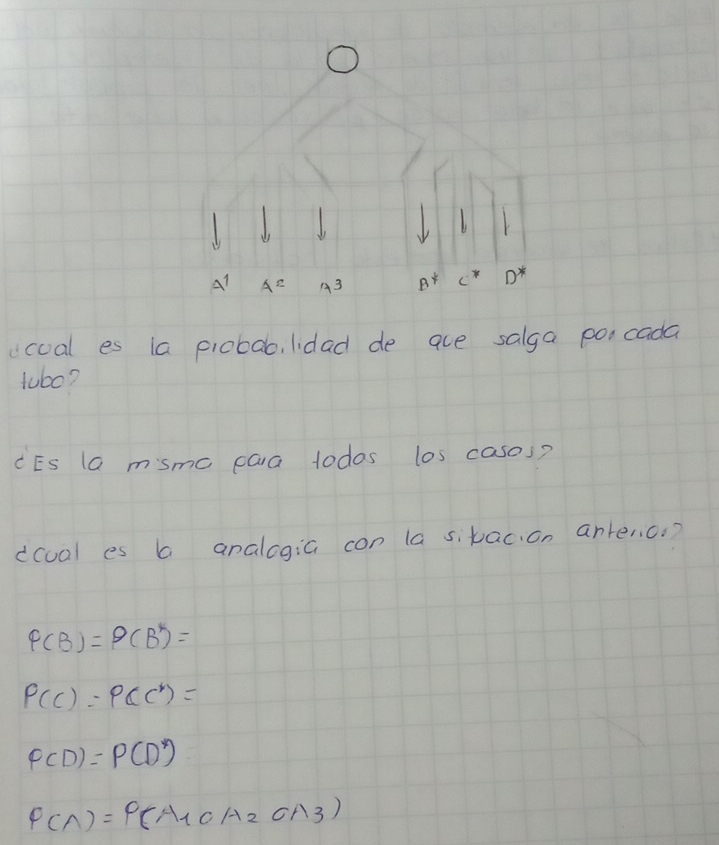 A1 A2 A3 B* C* D*
¿cual es la probabilidad de que salga por cada
tubo?
¿Es la misma para todos los casos?
¿cual es la analogia con la situacion anterior?
P(B)=P(B*)=
P(C)=P(C*)=
P(D)=P(D*)
P(A)=P(A1 o A2 o A3)